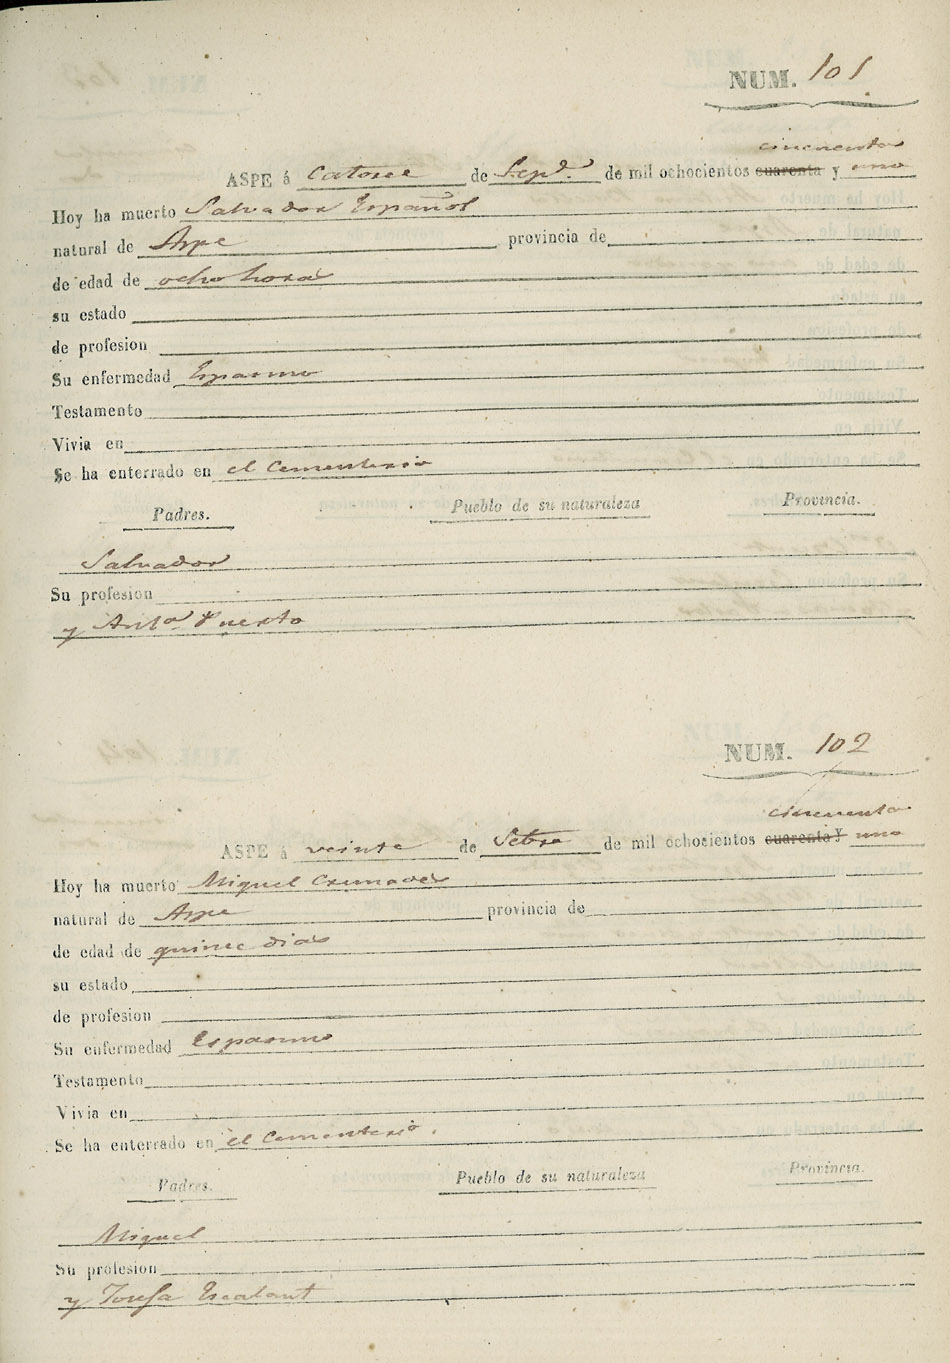 NUM. 101
cincuenta
ASPE á Catorce de Sepe. de mil ochocientos cuarenta y uno
Hoy ha muerto Salvador Español
natural de Aspe provincia de
de edad de ocho horas
su estado
de profesion
Su enfermedad Espasmo
Testamento
Vivia en
Se ha enterrado en el Cementerio
Padres. Pueblo de su naturaleza Provincia.
Salvador
Su profesion
y Anta Puerto
NUM. 102
cincuenta
ASPE á veinte de Setbre de mil ochocientos cuarenta y uno
Hoy ha muerto Miguel Cremades
natural de Aspe provincia de
de edad de quince dias
su estado
de profesion
Su enfermedad Espasmo
Testamento
Vivia en
Se ha enterrado en el Cementerio.
Padres. Pueblo de su naturaleza Provincia.
Miguel
Su profesion
y Josefa Escalant